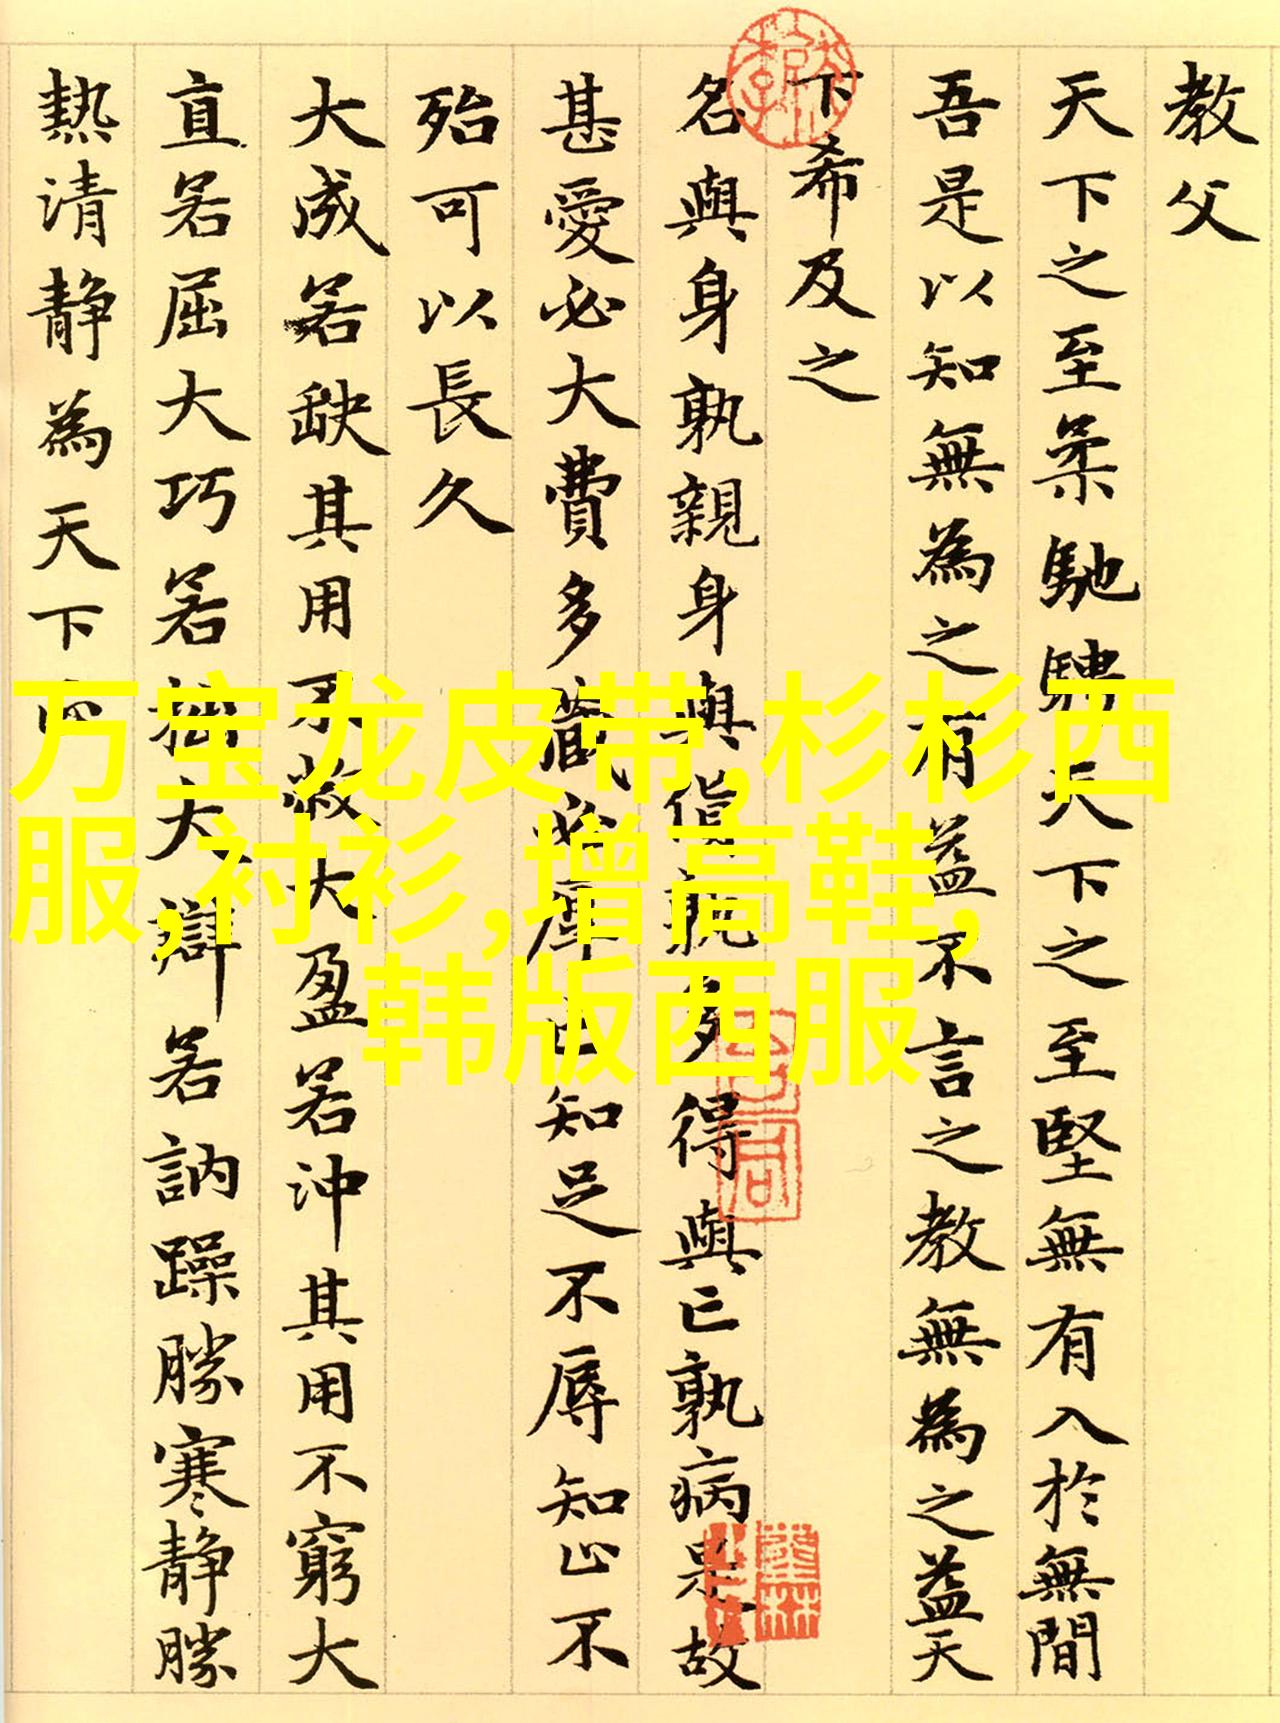 教父
天下之至柔馳騁天下之至堅無有入於無間
吾是以知無為之有益不言之教無為之益天
下希及之
名與身孰親身與貨孰多得與亡孰病是故
甚愛必大費多藏必厚亡知足不辱知止不
殆可以長久
大成若缺其用不敝大盈若沖其用不窮大
直若屈大巧若拙大辯若訥躁勝寒靜勝
熱清靜為天下
万宝龙皮带,杉杉西
服,衬衫,增高鞋,
韩版西服